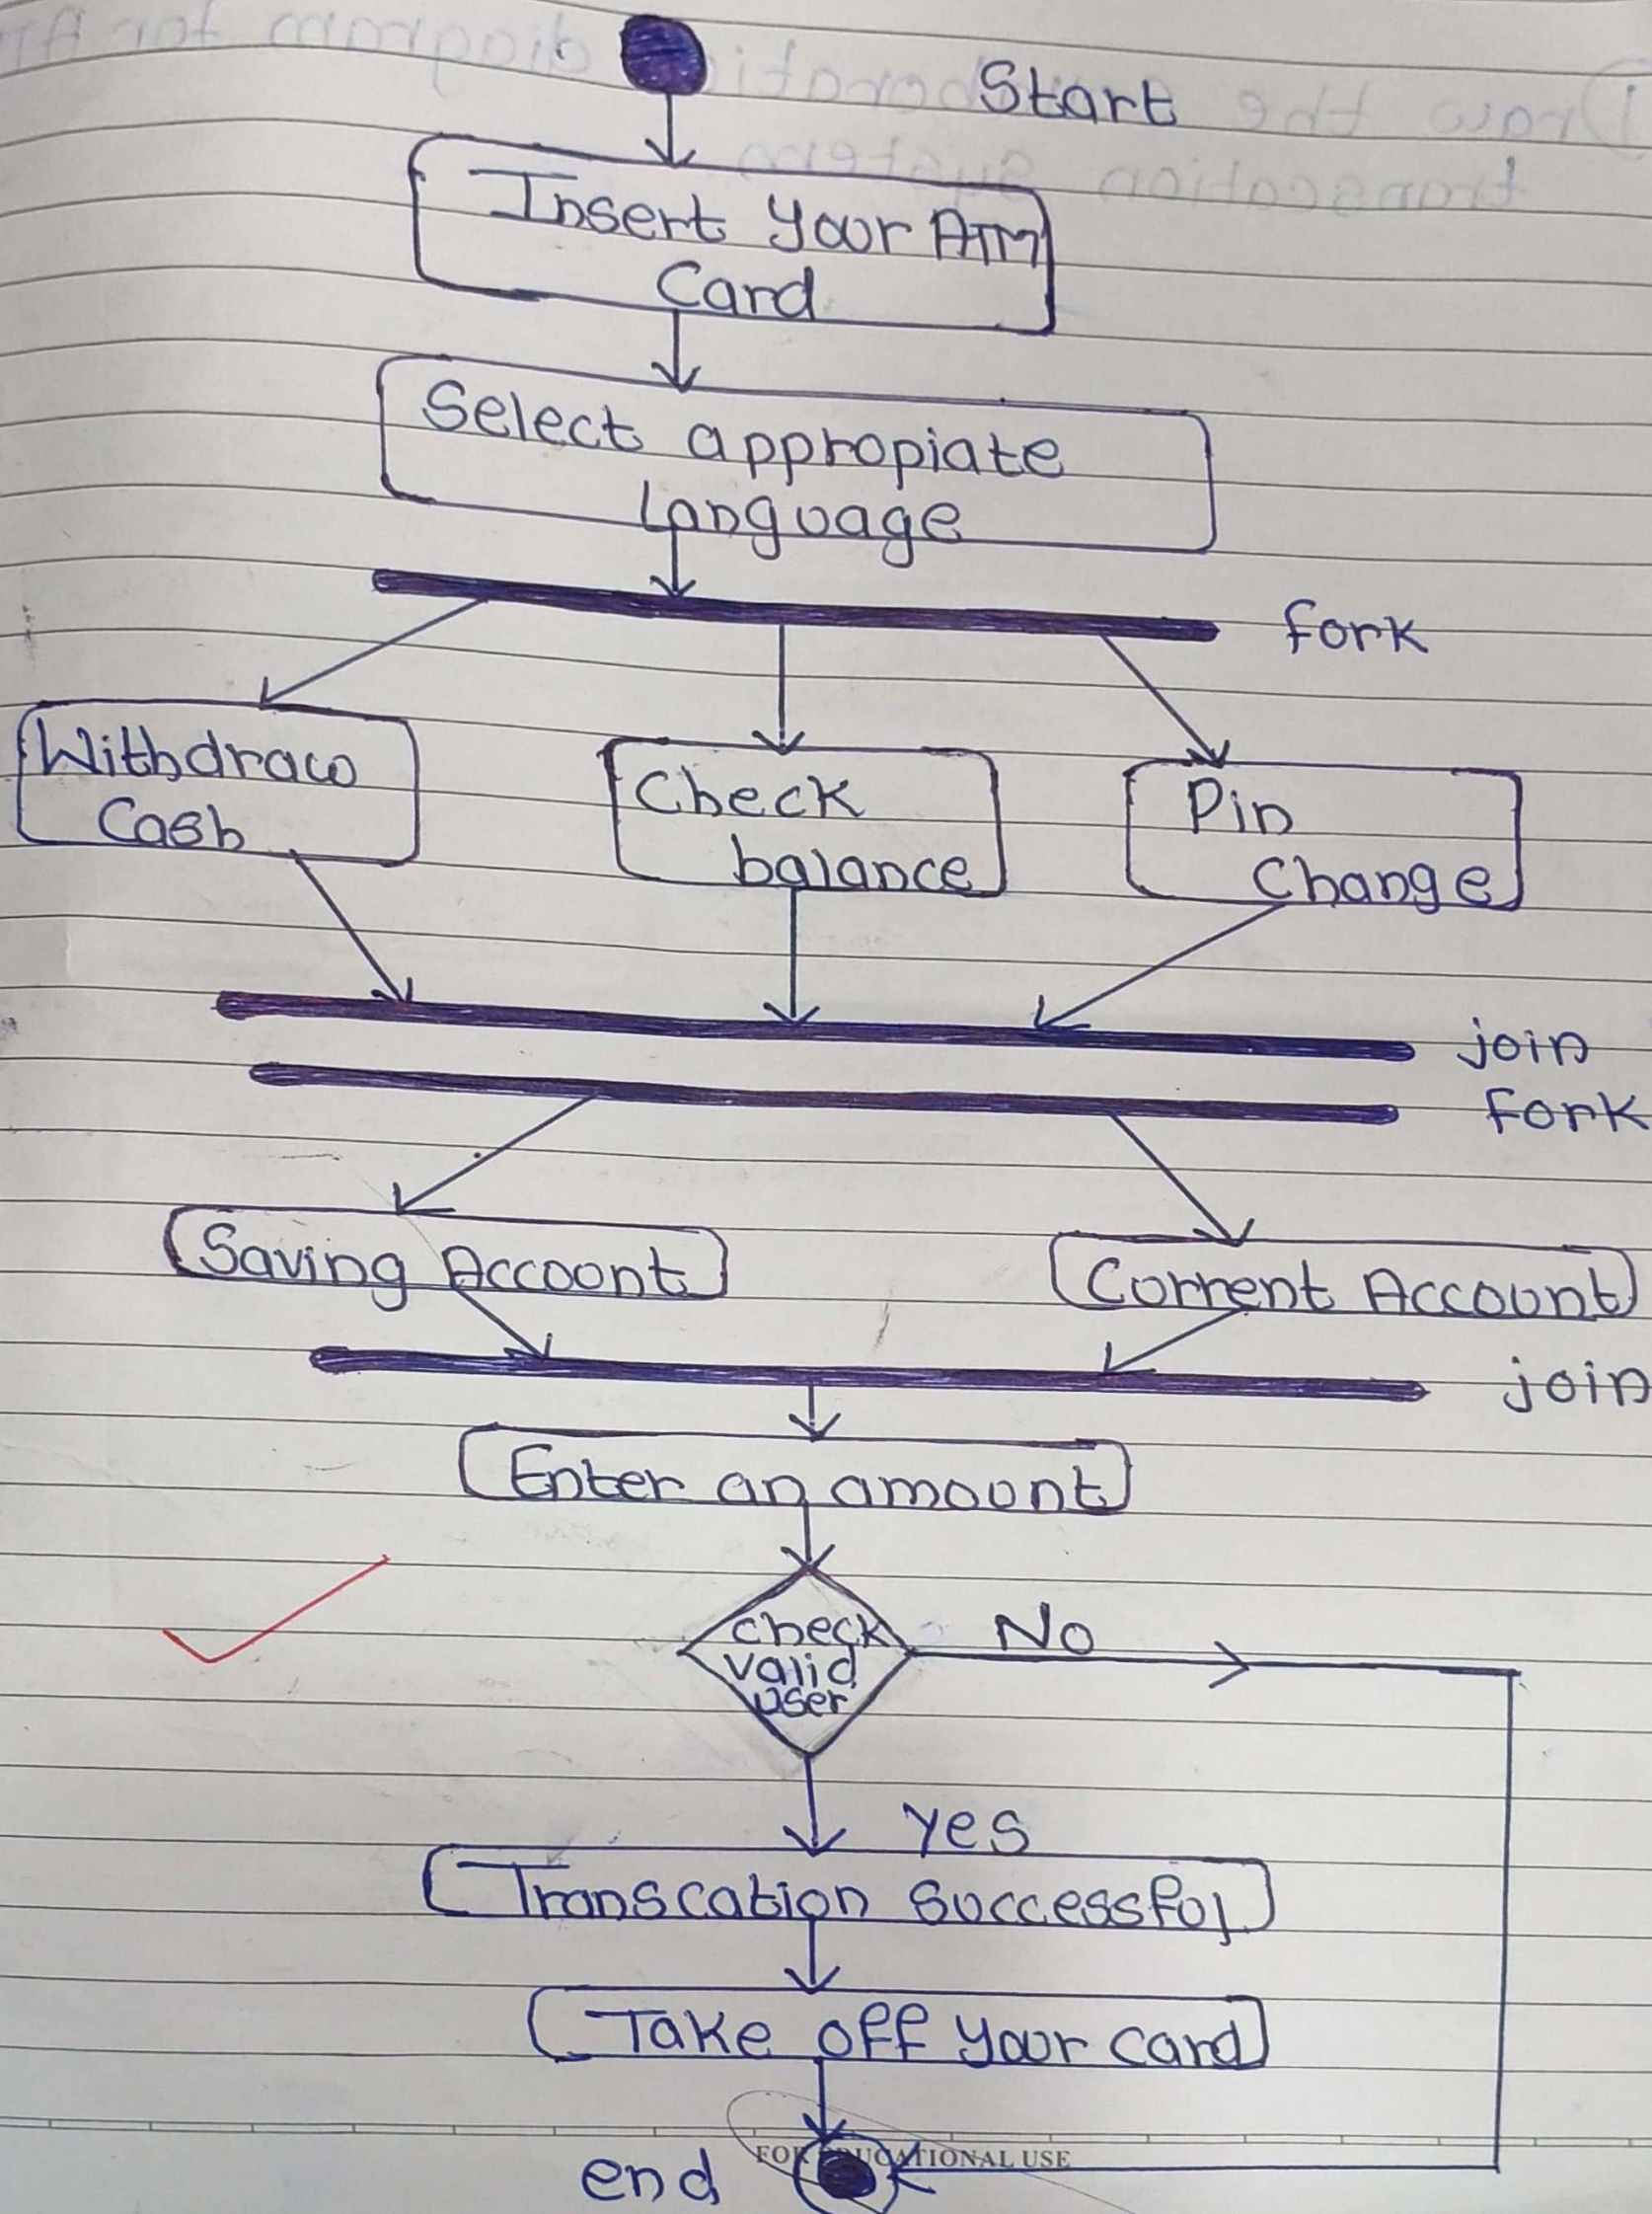 Start
Insert Your ATM
Card
Select appropiate
Language
fork
Withdraw
Cash
Check
balance
Pin
Change
join
fork
Saving Account
Current Account
join
Enter an amount
check
valid
user
No
Yes
Transcation Successful
Take off your card
FOR EDUCATIONAL USE
end